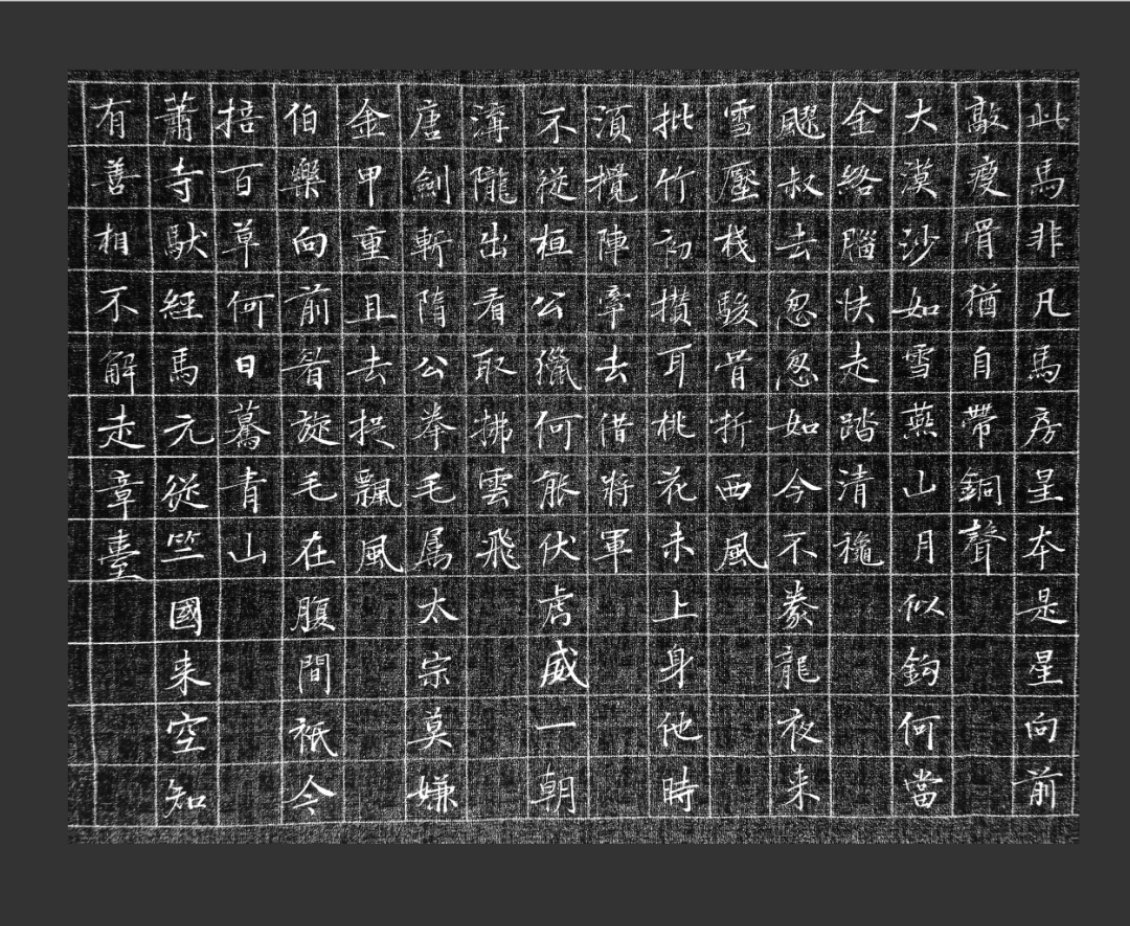 此馬非凡馬房星本是星向前
敲瘦骨猶自帶銅聲
大漠沙如雪燕山月似鈎何當
金絡腦快走踏清穐
飂叔去怱怱如今不豢龍夜来
雪壓棧駿骨折西風
批竹初攢耳桃花未上身他時
須攪陣牽去借將軍
不從桓公獵何能伏虎威一朝
溝隴出看取拂雲飛
唐劍斬隋公拳毛属太宗莫嫌
金甲重且去捉飄風
伯樂向前看旋毛在腹間祇今
掊百草何日驀青山
蕭寺馱經馬元從竺國来空知
有善相不解走章臺